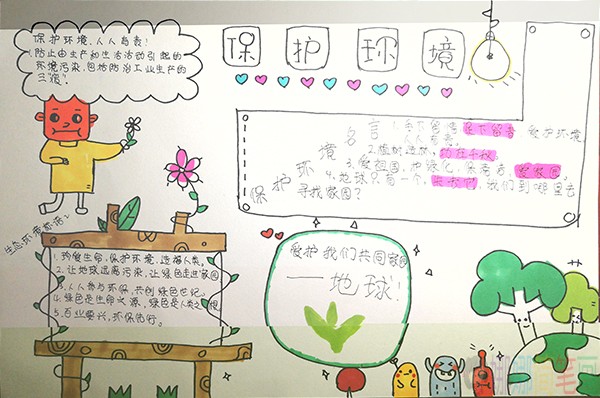 保护环境
保护环境,人人有责!
防止由生产和生活活动引起的
环境污染,包括防治工业生产的
三"废"!
保护环境名言
1.手下留情 足下留青 爱护环境
人人有责。
2.植树造林,功在千秋。
3.爱祖国,护绿化,保卫者,爱家园。
4.地球只有一个,失去它,我们到哪里去
寻找家园?
生态环境标语:
1.珍爱生命,保护环境,造福人类。
2.让地球远离污染,让绿色走进家园
3.人人参与环保,共创绿色世纪。
4.绿色是生命之源,绿色是人类之根
5.百业要兴,环保先行。
爱护我们共同家园
——地球!